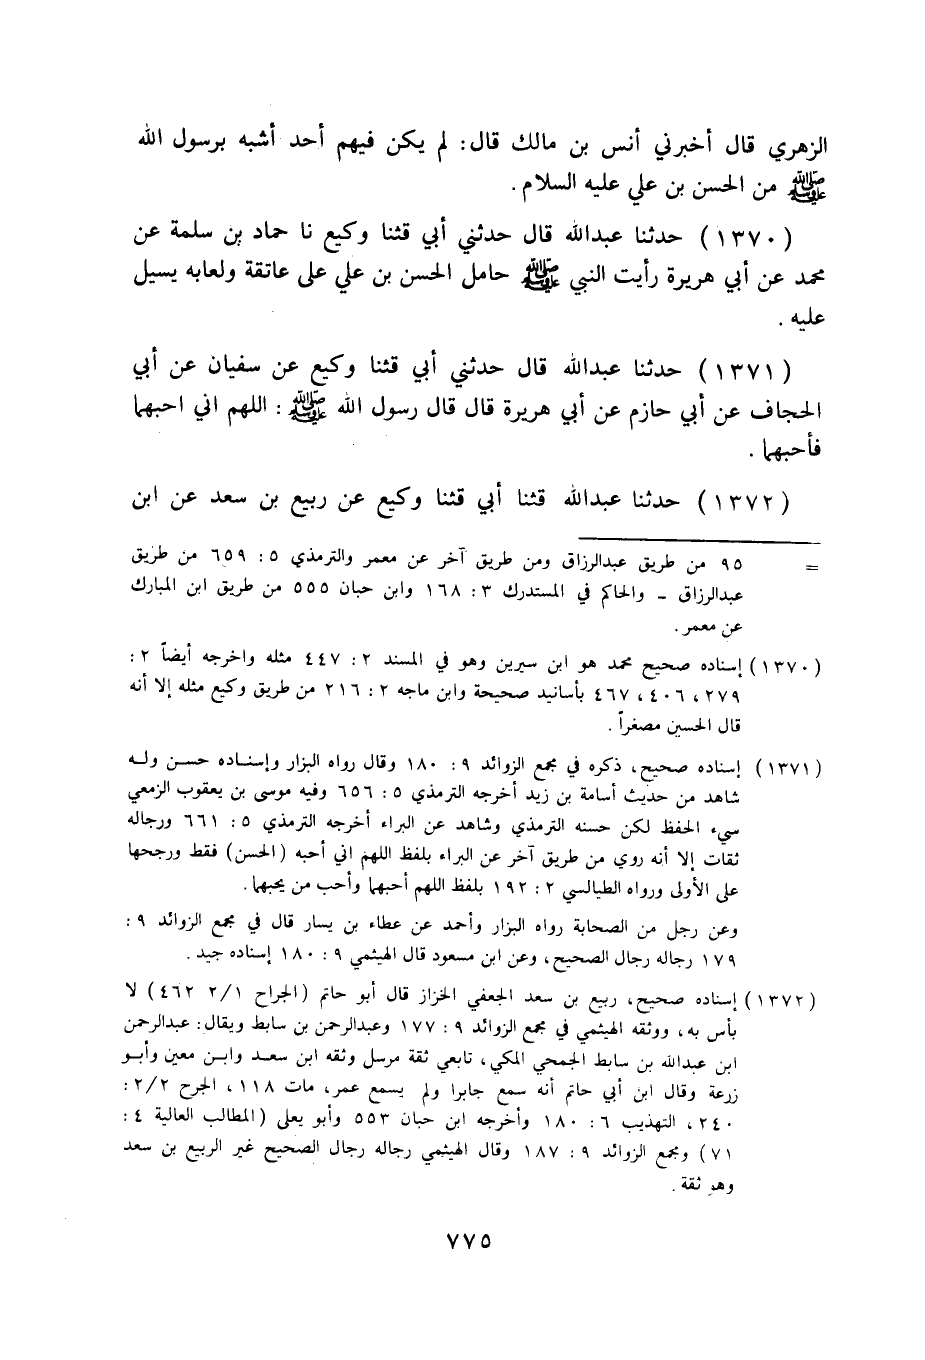 الزهري قال أخبرني أنس بن مالك قال: لم يكن فيهم أحد أشبه برسول الله
ﷺ من الحسن بن علي عليه السلام.
(١٣٧٠) حدثنا عبدالله قال حدثني أبي قثنا وكيع نا حماد بن سلمة عن
محمد عن أبي هريرة رأيت النبي ﷺ حامل الحسن بن علي على عاتقة ولعابه يسيل
عليه.
(١٣٧١) حدثنا عبدالله قال حدثني أبي قثنا وكيع عن سفيان عن أبي
الحجاف عن أبي حازم عن أبي هريرة قال قال رسول الله ﷺ: اللهم اني احبهما
فأحبهما.
(١٣٧٢) حدثنا عبدالله قثنا أبي قثنا وكيع عن ربيع بن سعد عن ابن
= ٩٥ من طريق عبدالرزاق ومن طريق آخر عن معمر والترمذي ٥: ٦٥٩ من طريق
عبدالرزاق - والحاكم في المستدرك ٣: ١٦٨ وابن حبان ٥٥٥ من طريق ابن المبارك
عن معمر.
(١٣٧٠) إسناده صحيح محمد هو ابن سيرين وهو في المسند ٢: ٤٤٧ مثله واخرجه أيضاً ٢:
٢٧٩، ٤٠٦، ٤٦٧ بأسانيد صحيحة وابن ماجه ٢: ٢١٦ من طريق وكيع مثله إلا أنه
قال الحسين مصغراً.
(١٣٧١) إسناده صحيح، ذكره في مجمع الزوائد ٩: ١٨٠ وقال رواه البزار وإسناده حسن وله
شاهد من حديث أسامة بن زيد أخرجه الترمذي ٥: ٦٥٦ وفيه موسى بن يعقوب الزمعي
سيء الحفظ لكن حسنه الترمذي وشاهد عن البراء أخرجه الترمذي ٥: ٦٦١ ورجاله
ثقات إلا أنه روي من طريق آخر عن البراء بلفظ اللهم اني أحبه (الحسن) فقط ورجحها
على الأولى ورواه الطيالسي ٢: ١٩٢ بلفظ اللهم أحبهما وأحب من يحبهما.
وعن رجل من الصحابة رواه البزار وأحمد عن عطاء بن يسار قال في مجمع الزوائد ٩:
١٧٩ رجاله رجال الصحيح، وعن ابن مسعود قال الهيثمي ٩: ١٨٠ إسناده جيد.
(١٣٧٢) إسناده صحيح، ربيع بن سعد الجعفي الخزاز قال أبو حاتم (الجراح ٢/١ ٤٦٢) لا
بأس به، ووثقه الهيثمي في مجمع الزوائد ٩: ١٧٧ وعبدالرحمن بن سابط ويقال: عبدالرحمن
ابن عبدالله بن سابط الجمحي المكي، تابعي ثقة مرسل وثقه ابن سعد وابن معين وأبو
زرعة وقال ابن أبي حاتم أنه سمع جابرا ولم يسمع عمر، مات ١١٨، الجرح ٢/٢:
٢٤٠، التهذيب ٦: ١٨٠ وأخرجه ابن حبان ٥٥٣ وأبو يعلى (المطالب العالية ٤:
٧١) ومجمع الزوائد ٩: ١٨٧ وقال الهيثمي رجاله رجال الصحيح غير الربيع بن سعد
وهو ثقة.
٧٧٥